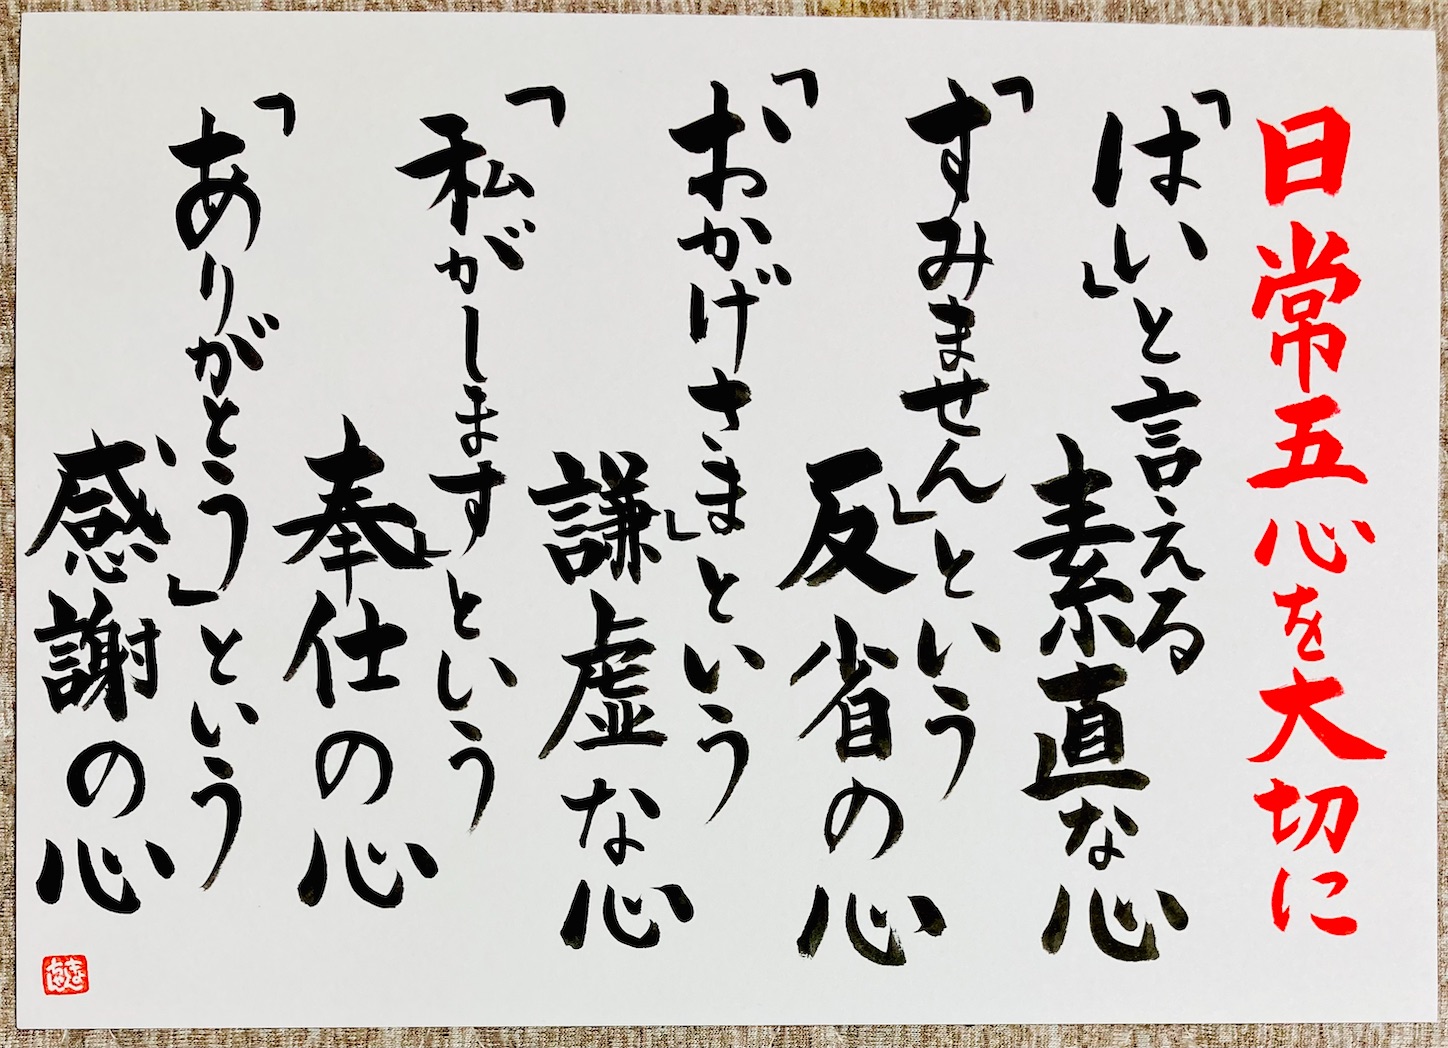 日常五心を大切に
「はい」と言える
素直な心
「すみません」という
反省の心
「おかげさま」という
謙虚な心
「私がします」という
奉仕の心
「ありがとう」という
感謝の心